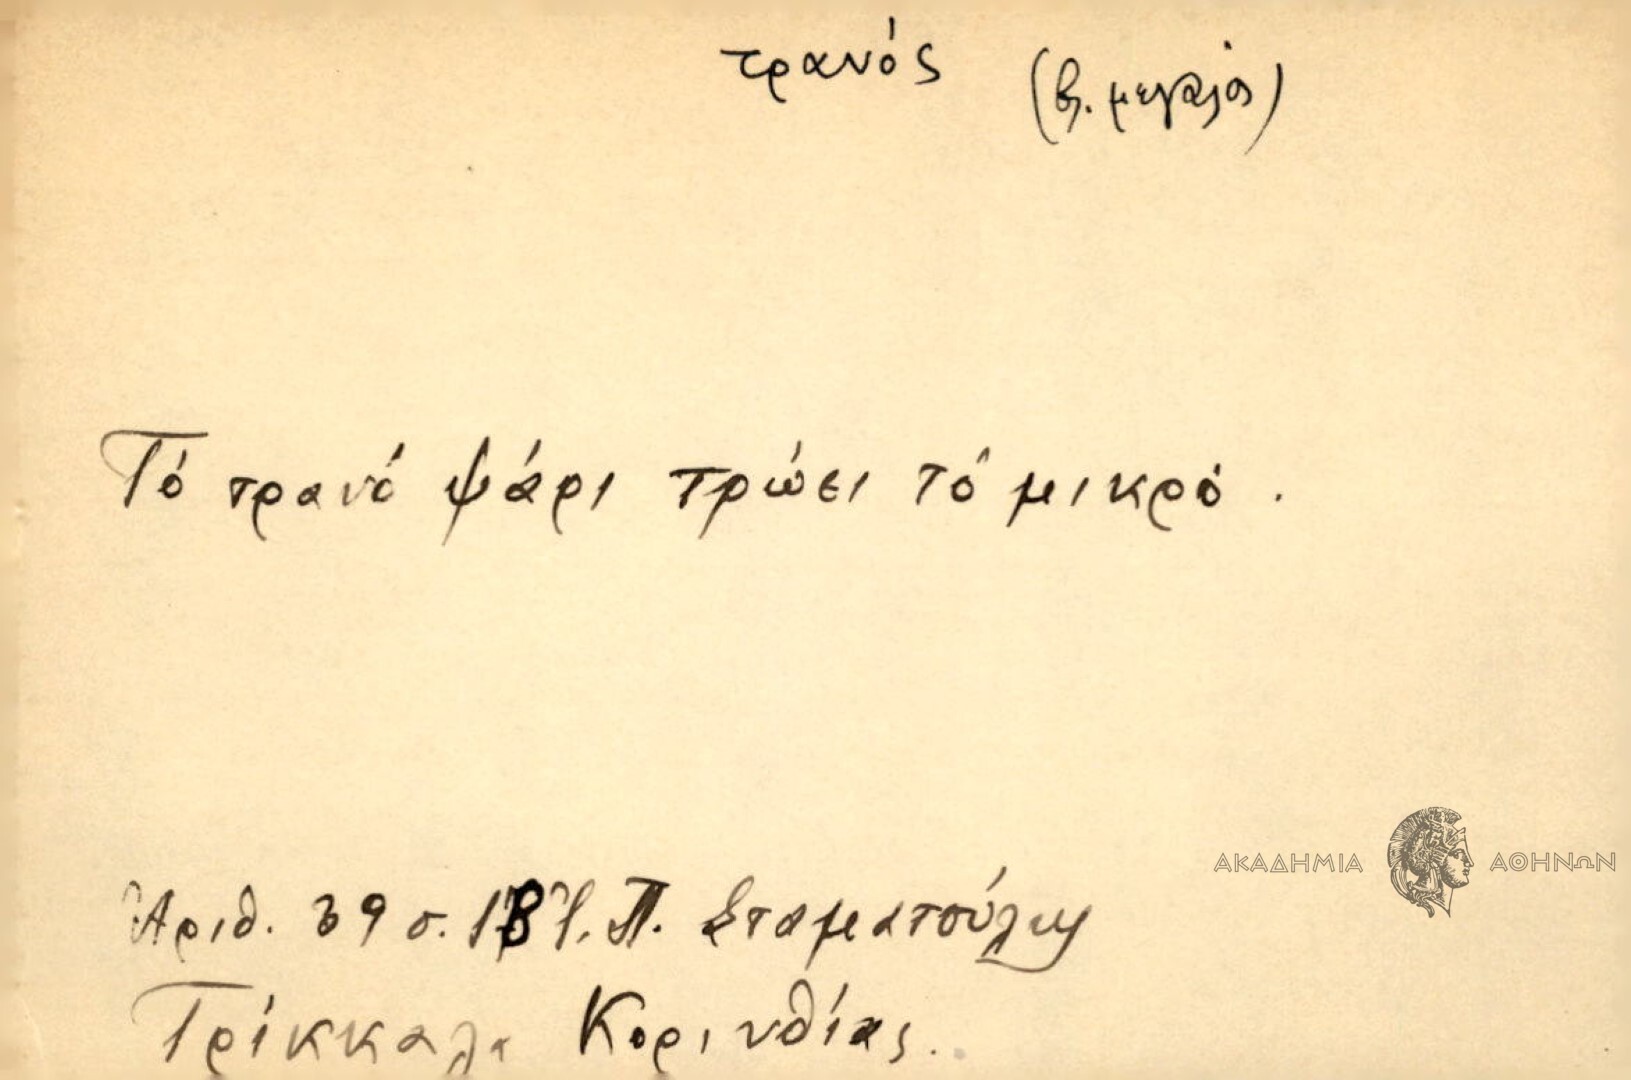 τρανός (βλ. μεγάλος)
Τό τρανό ψάρι τρώει τό μικρό.
ΑΚΑΔΗΜΙΑ ΑΘΗΝΩΝ
Ἀριθ. 39 σ. Π. Σταματούλης
Τρίκκαλα Κορινθίας.